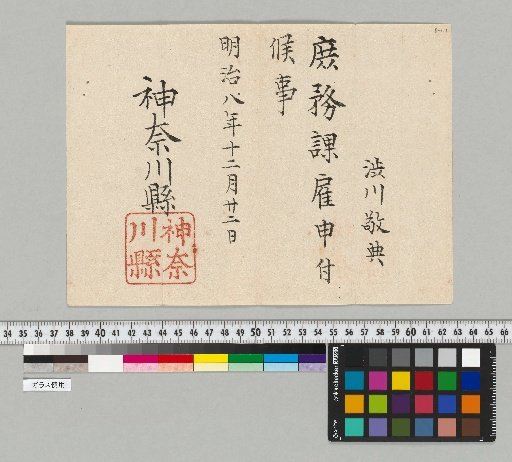 渋川敬典
庶務課雇申付
候事
明治八年十二月廿二日
神奈川縣
神奈
川縣
34 35 36 37 38 39 40 41 42 43 44 45 46 47 48 49 50 51 52 53 54 55 56 57 58 59 60 61 62 63 64 65 66
ガラス使用